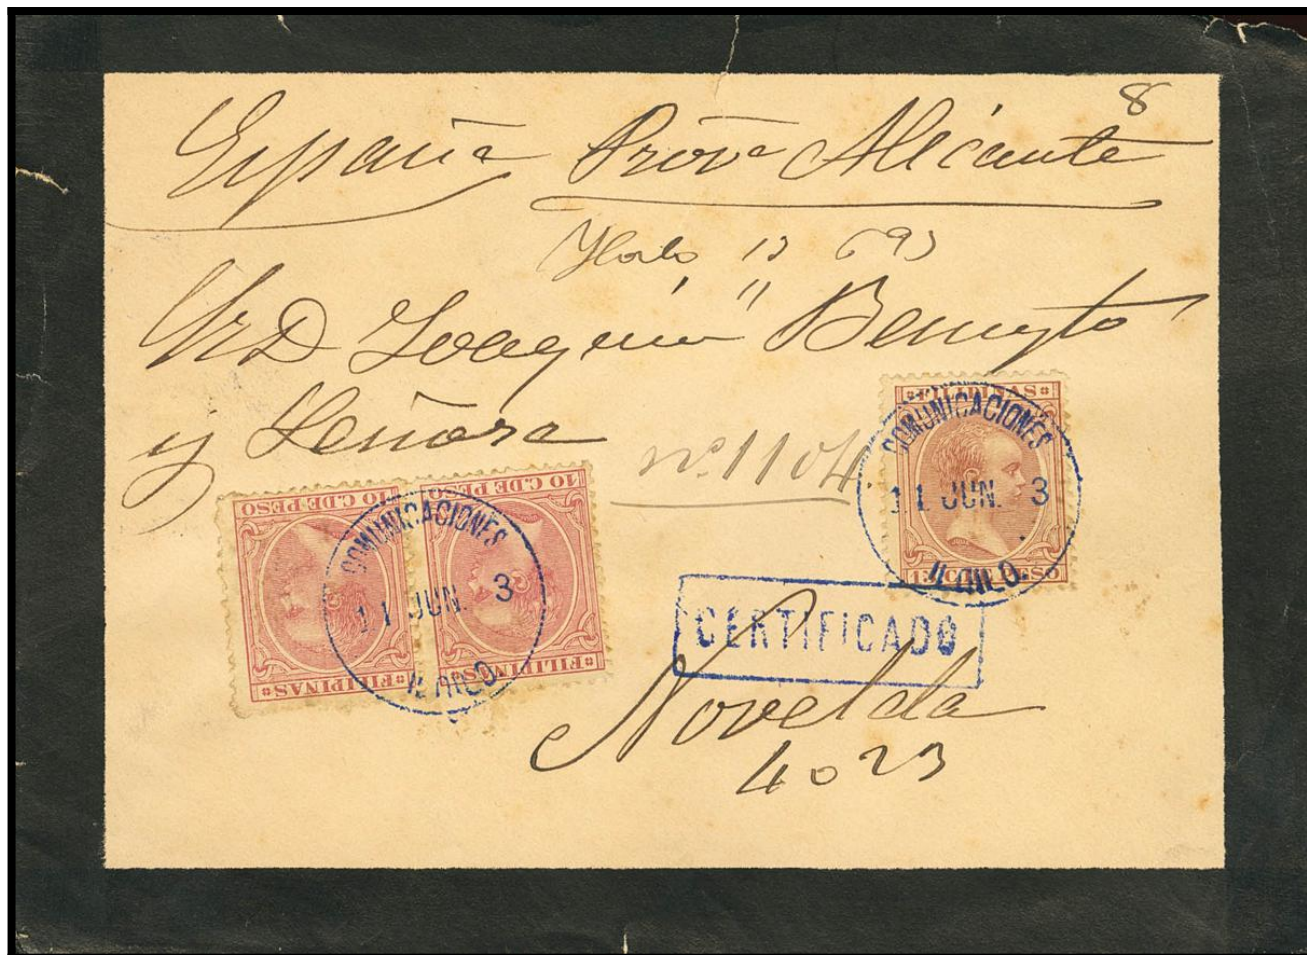 8
España Prov.ª Alicante
Yloilo 12 6 93
Sr D Joaquin Benyto
y Señora
nº 1104
FILIPINAS
COMUNICACIONES
11 JUN. 3
ILOILO
10 C. DE PESO
10 C. DE PESO
COMUNICACIONES
11 JUN. 3
ILOILO
FILIPINAS
FILIPINAS
CERTIFICADO
Novelda
4023